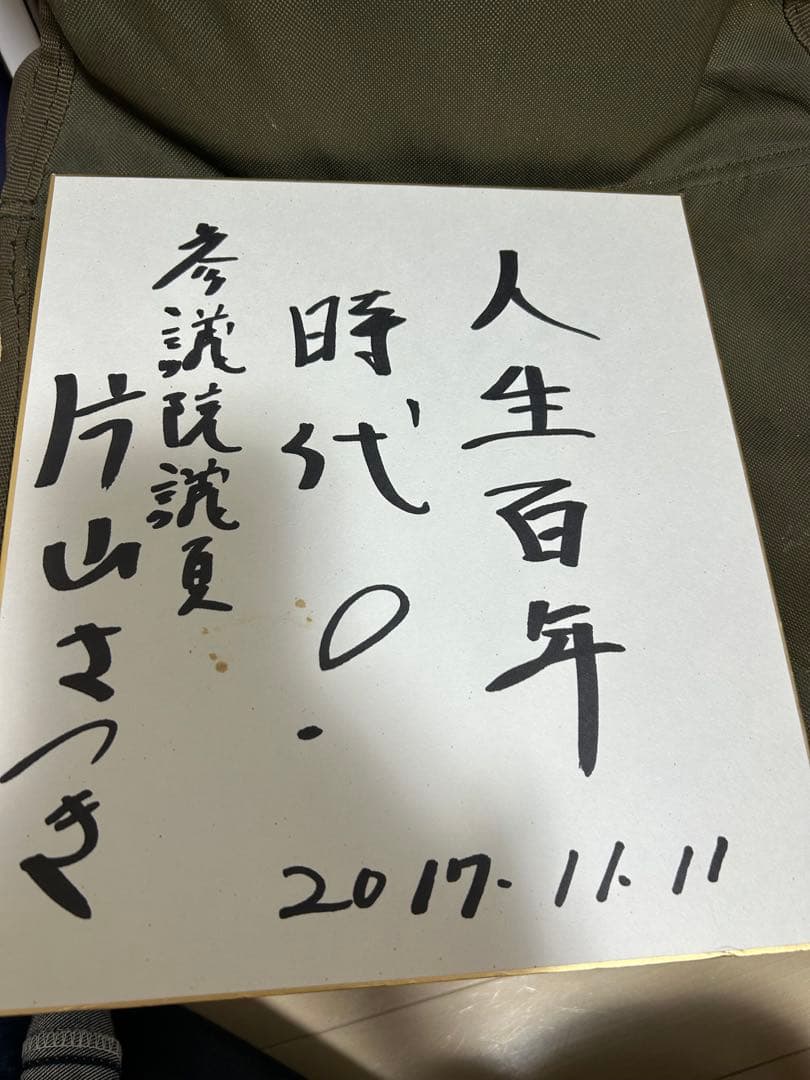 人生百年
時代!
参議院議員
片山さつき
2017.11.11